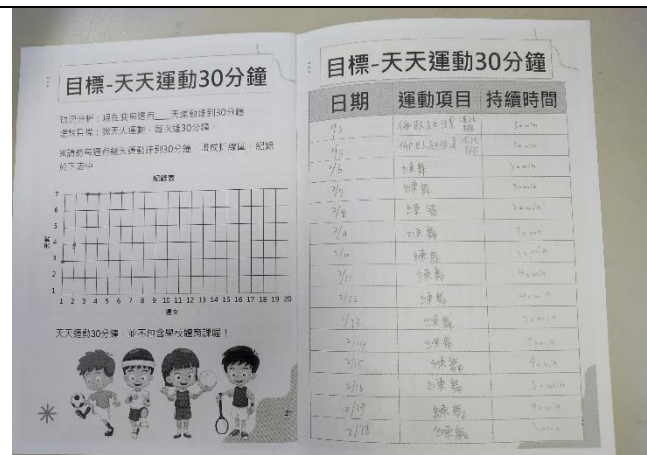 目標-天天運動30分鐘
現況分析：現在我每週有___天運動達到30分鐘
理想目標：我天天運動，每次達30分鐘。
於下表中
紀錄表
7
6
5
4
3
2
1
1 2 3 4 5 6 7 8 9 10 11 12 13 14 15 16 17 18 19 20
週次
天天運動30分鐘，並不包含學校體育課喔！
目標-天天運動30分鐘
日期 運動項目 持續時間
30min
30min
2/6 練舞 30min
2/7 練舞 30min
2/8 練舞 30min
2/9 練舞
2/10 練舞 30min
2/11 練舞 40min
2/12 練舞 40min
2/13 練舞 30min
2/14 練舞 30min
2/15 練舞 40min
2/16 練舞 30min
2/17 練舞 40min
2/18 練舞